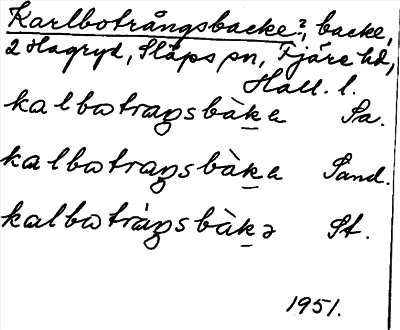 Karlbotrångsbacke?, backe,
2 Hagryd, Släps sn, Fjäre hd,
Hall. l.
kalbωtraŋsbàka Sa.
kalbωtraŋsbàka Sand.
kalbωtràŋsbàkə St.
1951.